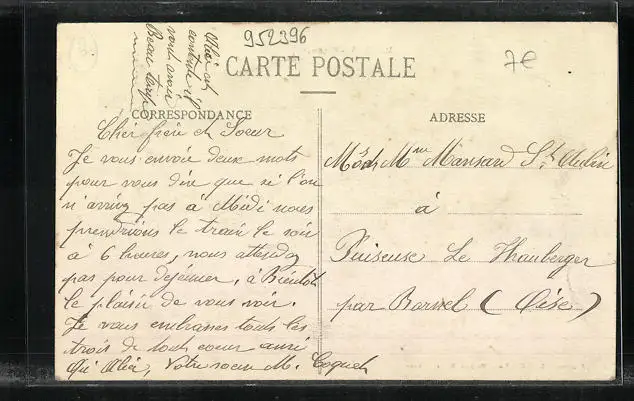 952396
7€
Alié et
contente il
vont avoir
Beau temps
CARTE POSTALE
CORRESPONDANCE
ADRESSE
Cher frère et Soeur
Je vous envoie deux mots
pour vous dire que si l'on
n'arrive pas à Midi nous
prendrions le train le soir
à 6 heures, nous attendez
pas pour déjeuner, à Bientôt
le plaisir de vous voir.
Je vous embrasses touts les
trois de tout coeur ainsi
Qu'Alié, Votre soeur M. Coquet
Mr et Mme Mansard St Aubin
à
Puiseuse Le Hauberger
par Bornel (Oise)